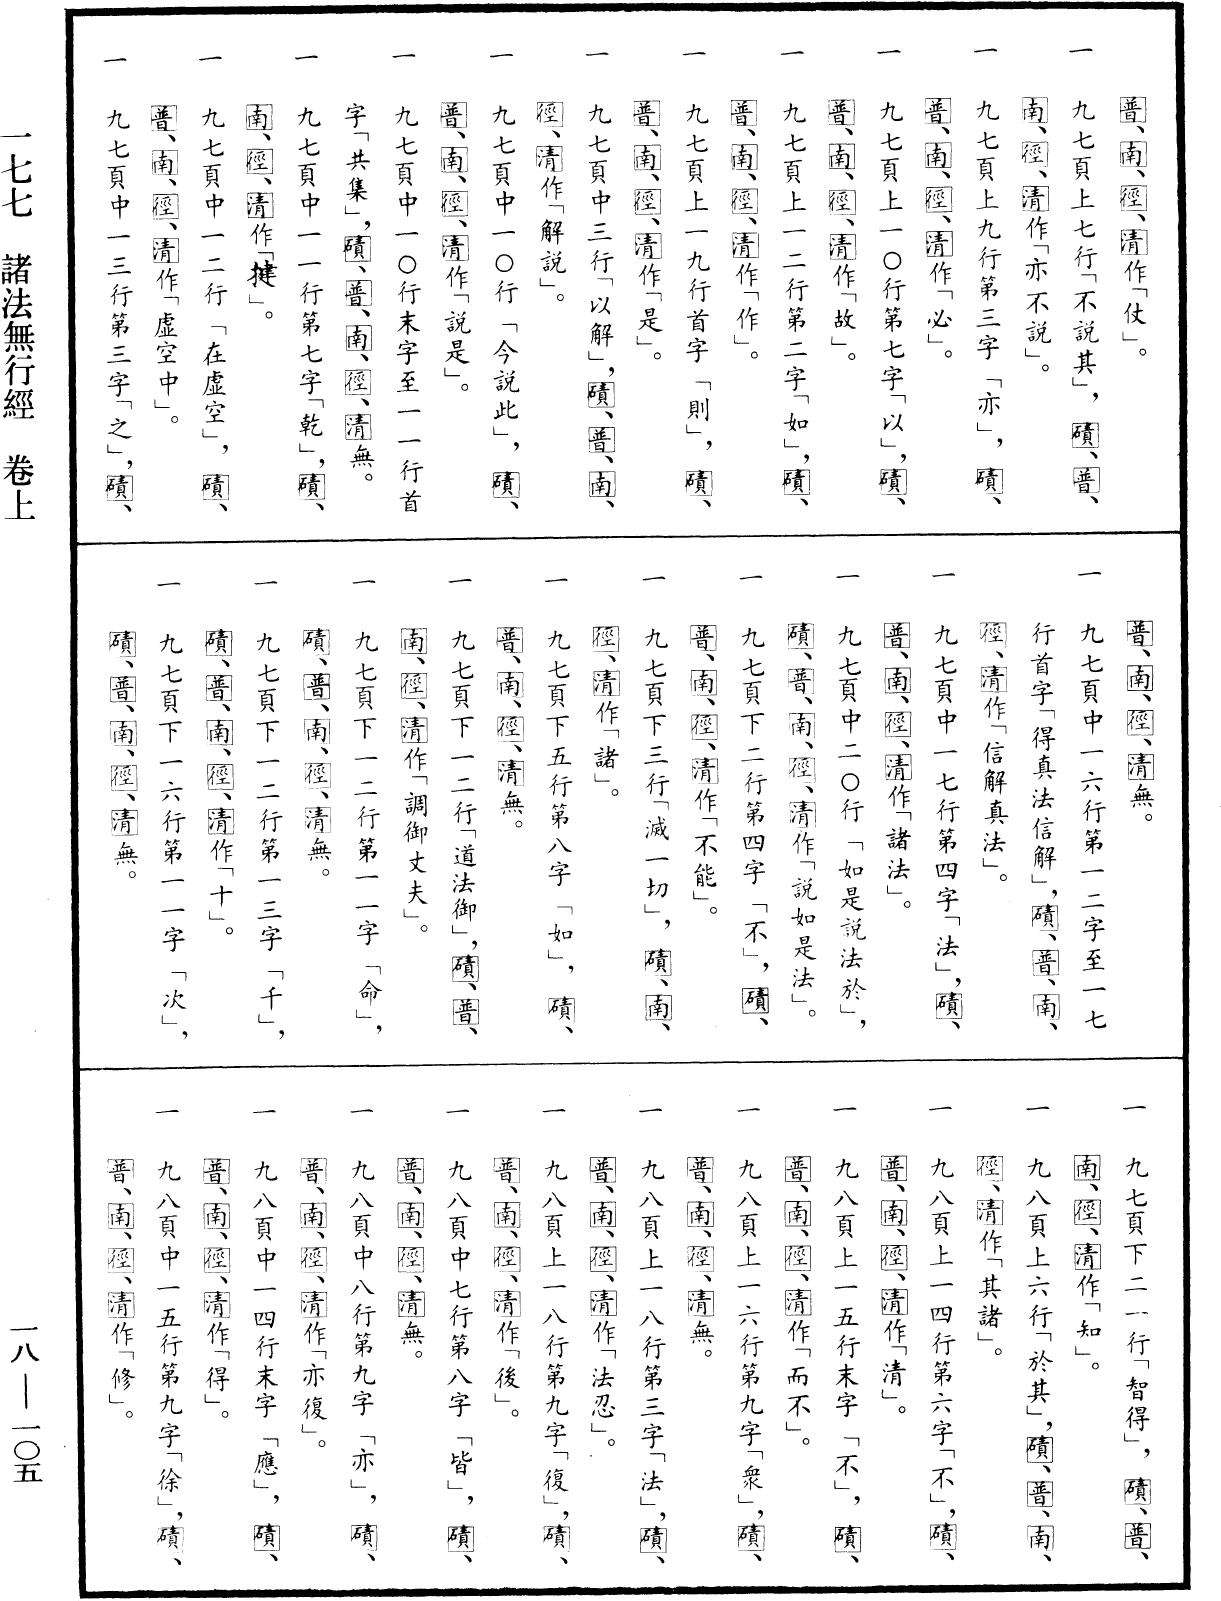 普、南、徑、清作「仗」。
一　九七頁上七行「不說其」，磧、普、
南、徑、清作「亦不說」。
一　九七頁上九行第三字「亦」，磧、
普、南、徑、清作「必」。
一　九七頁上一〇行第七字「以」，磧、
普、南、徑、清作「故」。
一　九七頁上一二行第二字「如」，磧、
普、南、徑、清作「作」。
一　九七頁上一九行首字「則」，磧、
普、南、徑、清作「是」。
一　九七頁中三行「以解」，磧、普、南、
徑、清作「解說」。
一　九七頁中一〇行「今說此」，磧、
普、南、徑、清作「說是」。
一　九七頁中一〇行末字至一一行首
字「共集」，磧、普、南、徑、清無。
一　九七頁中一一行第七字「乾」，磧、
南、徑、清作「揵」。
一　九七頁中一二行「在虛空」，磧、
普、南、徑、清作「虛空中」。
一　九七頁中一三行第三字「之」，磧、
普、南、徑、清無。
一　九七頁中一六行第一二字至一七
行首字「得真法信解」，磧、普、南、
徑、清作「信解真法」。
一　九七頁中一七行第四字「法」，磧、
普、南、徑、清作「諸法」。
一　九七頁中二〇行「如是說法於」，
磧、普、南、徑、清作「說如是法」。
一　九七頁下二行第四字「不」，磧、
普、南、徑、清作「不能」。
一　九七頁下三行「滅一切」，磧、南、
徑、清作「諸」。
一　九七頁下五行第八字「如」，磧、
普、南、徑、清無。
一　九七頁下一二行「道法御」，磧、普、
南、徑、清作「調御丈夫」。
一　九七頁下一二行第一一字「命」，
磧、普、南、徑、清無。
一　九七頁下一二行第一三字「千」，
磧、普、南、徑、清作「十」。
一　九七頁下一六行第一一字「次」，
磧、普、南、徑、清無。
一　九七頁下二一行「智得」，磧、普、
南、徑、清作「知」。
一　九八頁上六行「於其」，磧、普、南、
徑、清作「其諸」。
一　九八頁上一四行第六字「不」，磧、
普、南、徑、清作「清」。
一　九八頁上一五行末字「不」，磧、
普、南、徑、清作「而不」。
一　九八頁上一六行第九字「衆」，磧、
普、南、徑、清無。
一　九八頁上一八行第三字「法」，磧、
普、南、徑、清作「法忍」。
一　九八頁上一八行第九字「復」，磧、
普、南、徑、清作「後」。
一　九八頁中七行第八字「皆」，磧、
普、南、徑、清無。
一　九八頁中八行第九字「亦」，磧、
普、南、徑、清作「亦復」。
一　九八頁中一四行末字「應」，磧、
普、南、徑、清作「得」。
一　九八頁中一五行第九字「徐」，磧、
普、南、徑、清作「修」。
一七七　諸法無行經　卷上
一八—一〇五